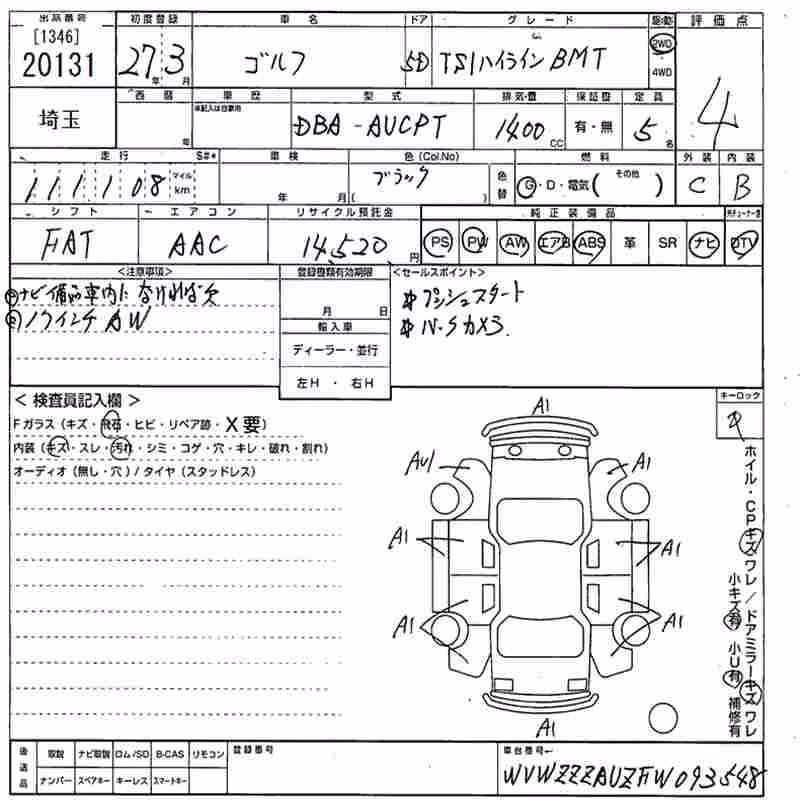 出品番号 初度登録 車名 ドア グレード 駆動 評価点
[1346]
20131 27年 3月 ゴルフ 5D TSIハイライン BMT 2WD 4WD 4
埼玉 西暦 年 車歴 未記入は自家用 型式 排気量 保証書 定員
DBA-AUCPT 1400 CC 有・無 5名
走行 S#* 車検 色(Col.No) 色替 燃料 外装 内装
111,108 マイル km 年 月 ブラック ( ) G・D・電気( その他 ) C B
シフト エアコン リサイクル預託金 純正装備品
FAT AAC 14,520円 PS PW AW エアB ABS 革 SR ナビ DTV
<注意事項> 登録書類有効期限 <セールスポイント>
ナビ備品車内になければ欠 月 日 プッシュスタート
インチAW 輸入車 カメラ
ディーラー・並行
左H・右H
<検査員記入欄> キーロック
Fガラス(キズ・飛石・ヒビ・リペア跡・X要)
内装(キズ・スレ・汚れ・シミ・コゲ・穴・キレ・破れ・割れ)
オーディオ(無し・穴)/タイヤ(スタッドレス)
A1
AU1 A1
A1 A1
A1 A1
A1
ホイル・CPキズワレ/ドアミラーキズワレ
小キズ有 小U有 補修有
後送品 取説 ナビ取説 ロム/SD B-CAS リモコン 登録番号 車台番号
ナンバー スペアキー キーレス スマートキー WVWZZZAUZFW093548